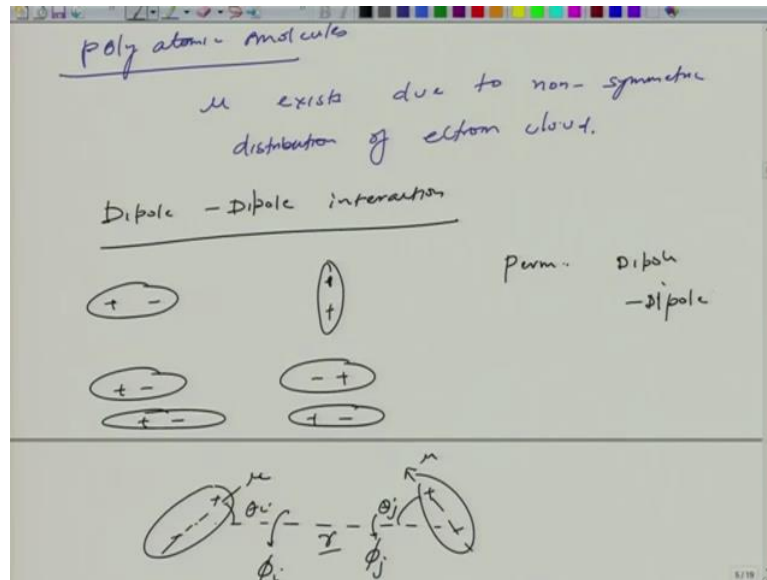 poly atomic molcules
μ exists due to non-symmetric
distribution of ectrom cloud.
Dipole - Dipole interaction
Perm. Dipole
- Dipole
+ -
+
+ -
- +
+ -
+ -
+ μ
θi
r
θj
μ
+
ϕi
ϕj
5/19